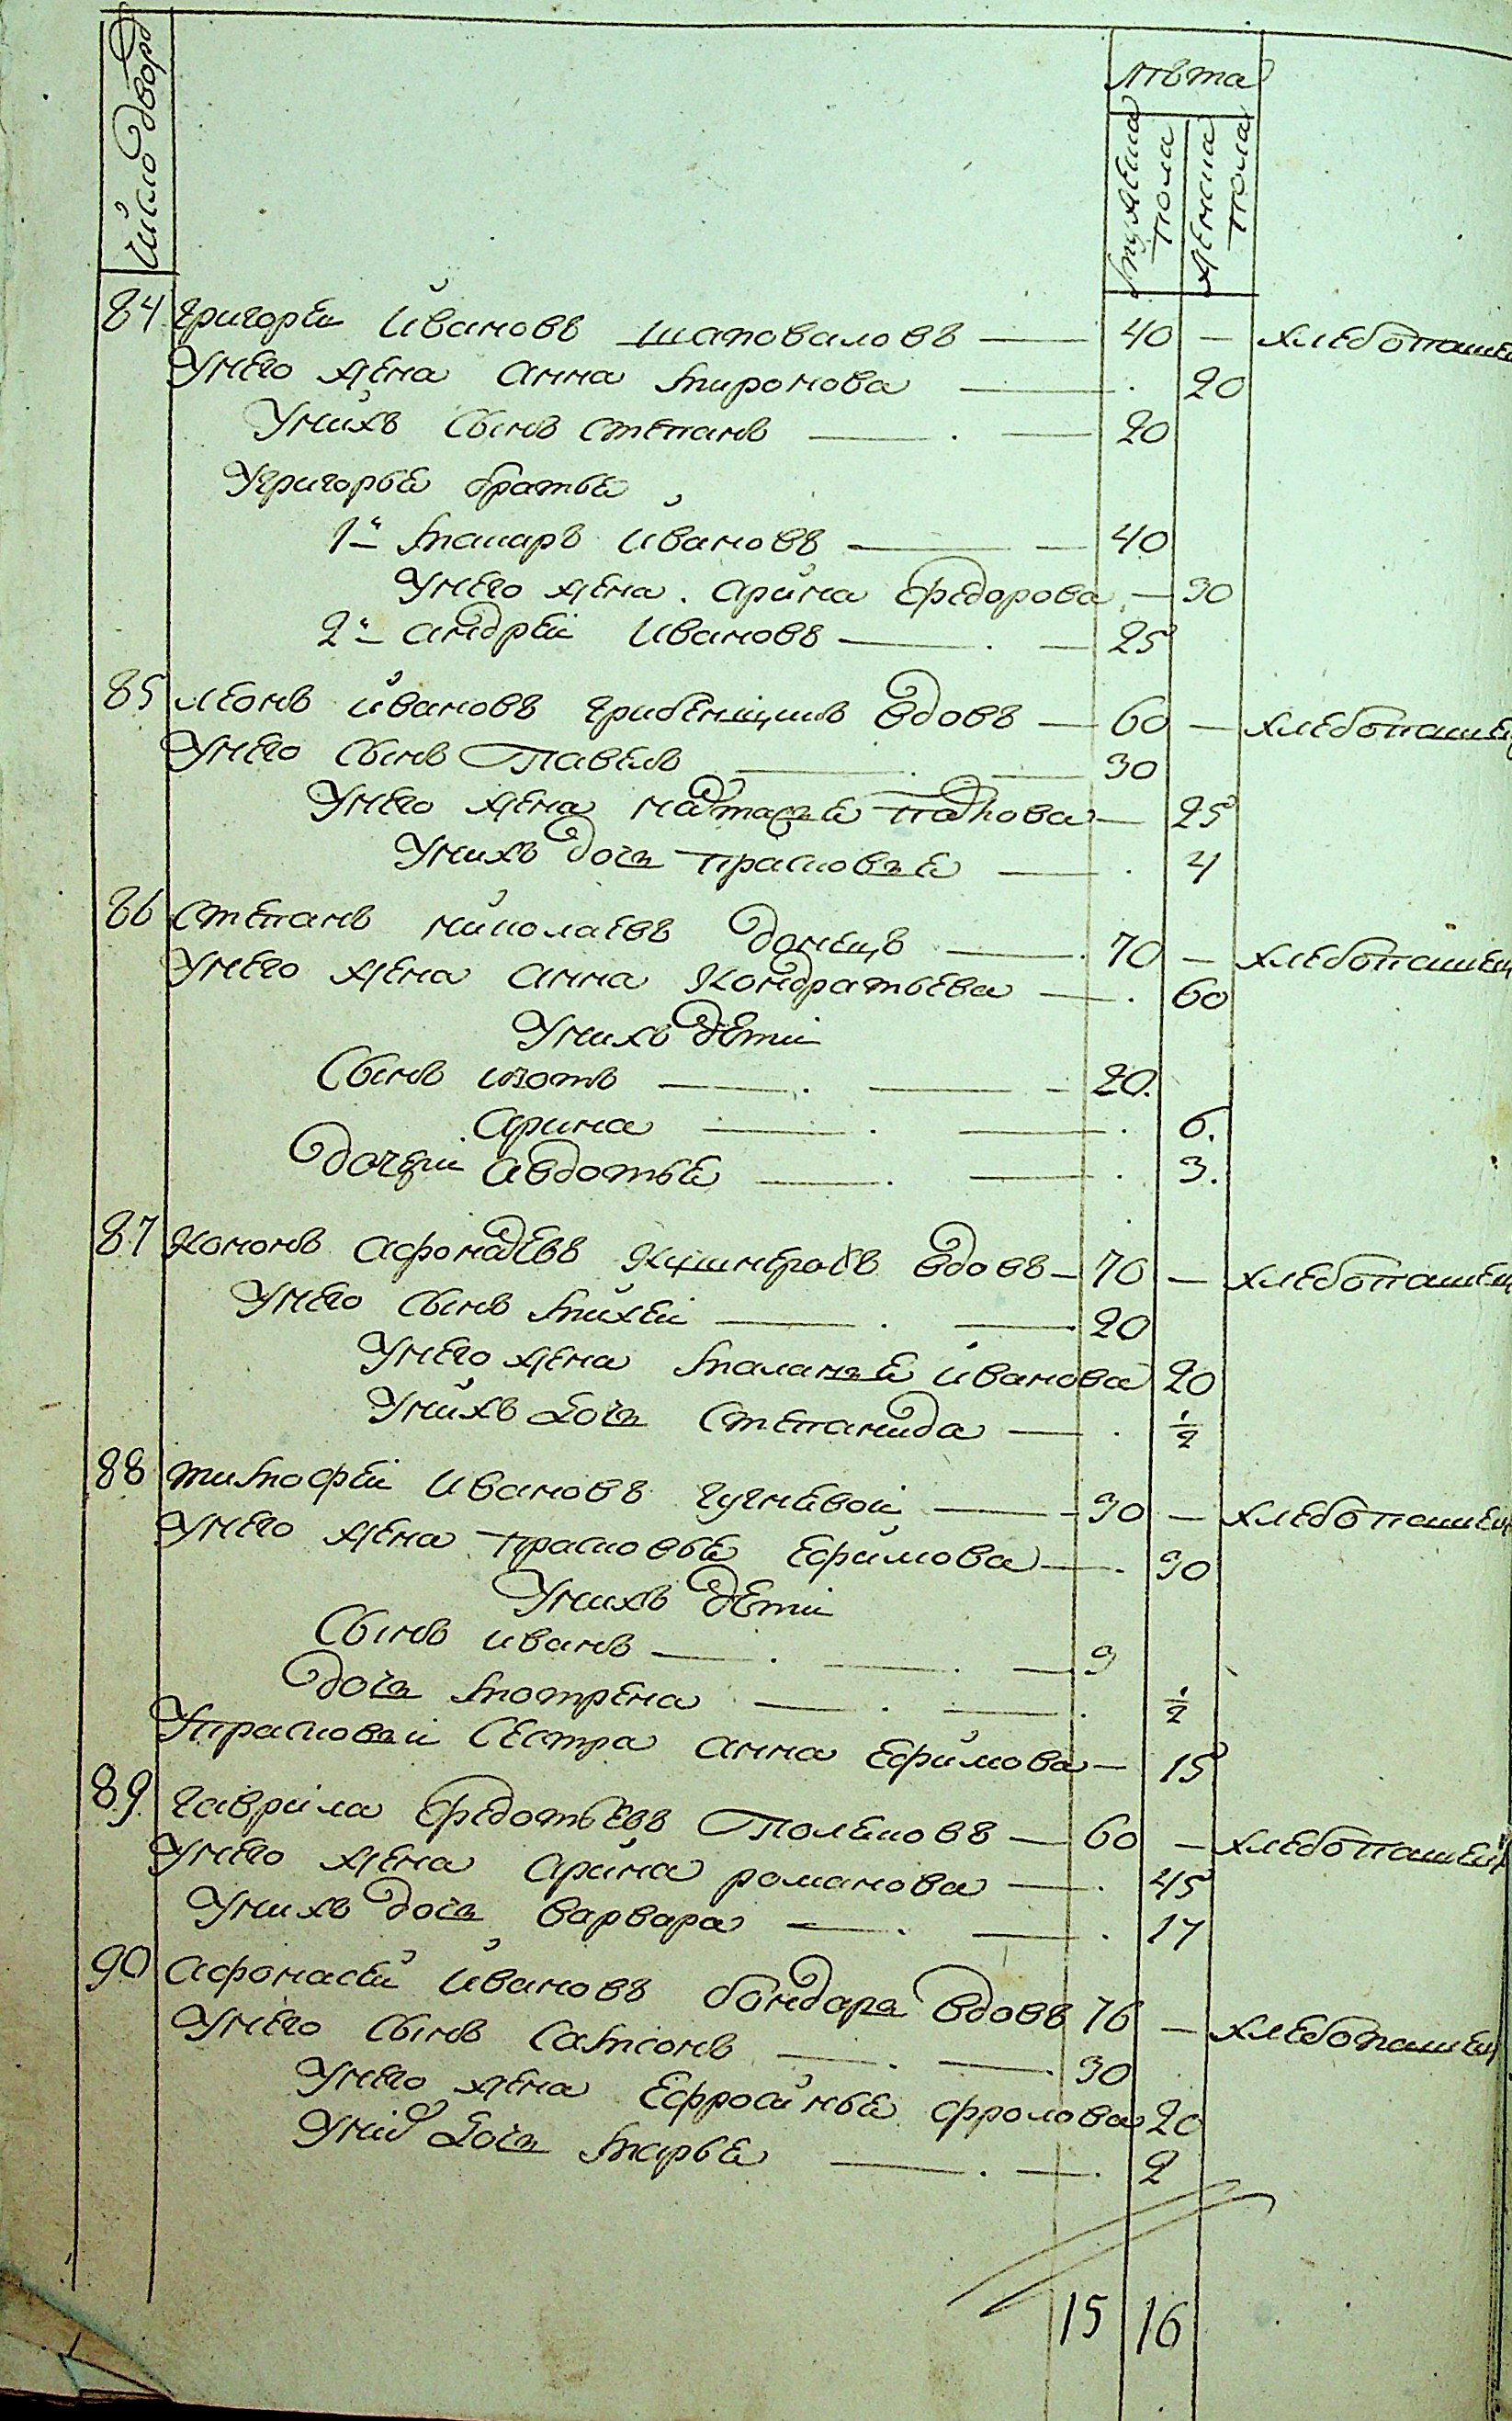 Число дворо
лѣта
мужеска пола
женска пола
84 Григорей Ивановъ шаповаловъ — 40 — хлебопашец
Унего жена анна миронова — 20
Унихъ сынъ степанъ — 20
Угригорья братья
1й макаръ Ивановъ — 40
Унего жена арина Федорова — 30
2й андрей Ивановъ — 25
85 леонъ Ивановъ гребенщикъ вдовъ — 60 — хлебопашец
Унего сынъ павелъ — 30
Унего жена наталья — 25
Унихъ дочь прасковья — 4
86 степанъ николаевъ донецъ — 70 — хлебопашец
Унего жена анна Кондратьева — 60
Унихъ дети
сынъ изотъ — 20
арина — 6
дочери авдотья — 3
87 Кононъ афонаѣевъ вдовъ — 70 — хлебопашец
Унего сынъ михей — 20
Унего жена маланья Иванова 20
Унихъ дочь степанида — 1/2
88 тимофей Ивановъ гугневой — 30 — хлебопашец
Унего жена прасковья Ефимова — 30
Унихъ дети
сынъ иванъ — 3
дочь мотрена — 1/2
Упрасковьи сестра анна Ефимова — 15
89 гаврила Федотьевъ Полековъ — 60 — хлебопашец
Унего жена арина романова — 45
Унихъ дочь варвара — 17
90 афонасей Ивановъ бондарь вдовъ 76 — хлебопашец
Унего сынъ самсонъ — 30
Унего жена Ефросинья фролова 20
Унихъ дочь марья — 2
15 16